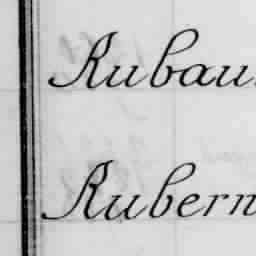 Rubau
Rubern